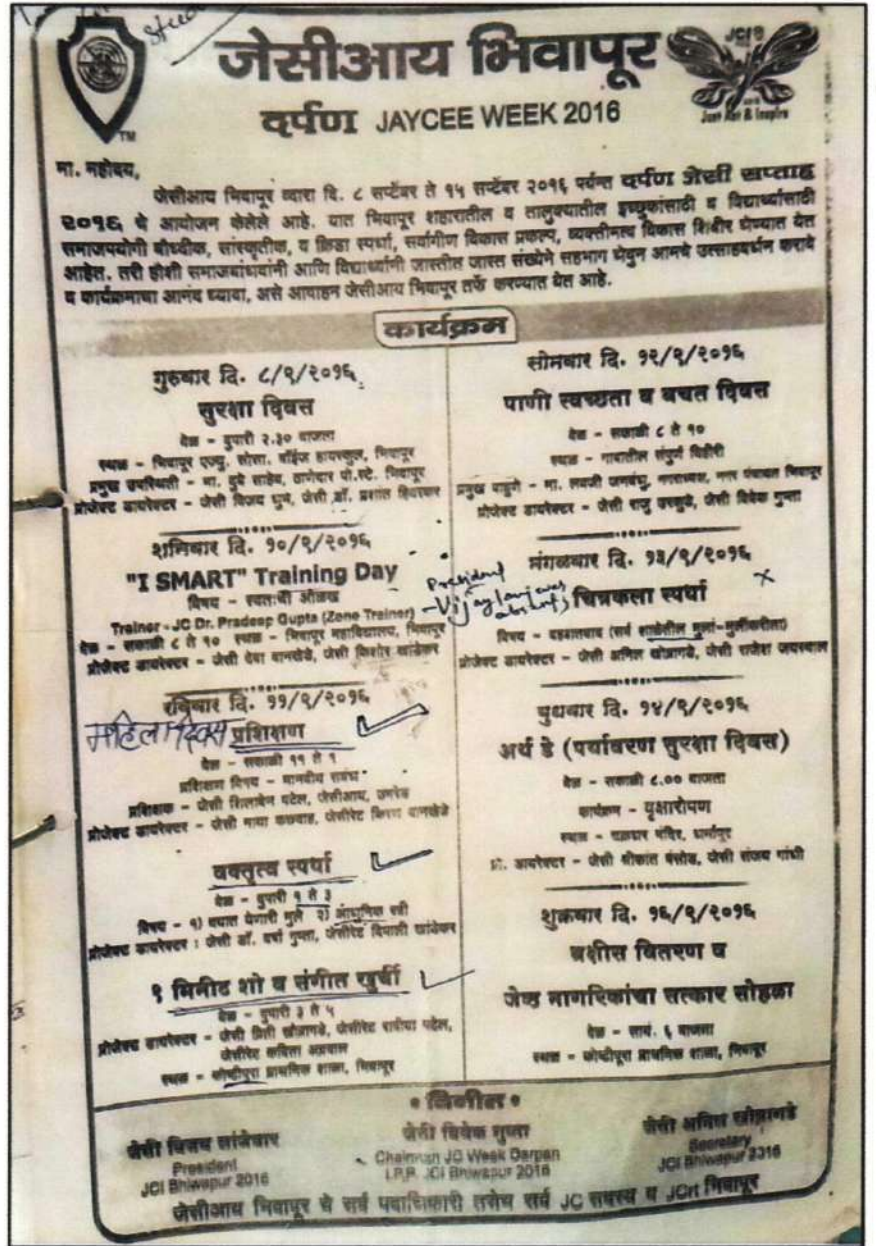 जेसीआय भिवापूर
दर्पण JAYCEE WEEK 2016
TM
JCI
मा. महोदय,
जेसीआय भिवापूर व्दारा दि. ८ सप्टेंबर ते १५ सप्टेंबर २०१६ पर्यन्त दर्पण जेसी सप्ताह
२०१६ चे आयोजन केलेले आहे. यात भिवापूर शहरातील व तालुक्यातील इच्छुकांसाठी व विद्यार्थ्यांसाठी
समाजपयोगी बौध्दीक, सांस्कृतीक, व क्रिडा स्पर्धा, सर्वांगीण विकास प्रकल्प, व्यक्तीमत्व विकास शिबीर घेण्यात येत
आहेत. तरी हौशी समाजबांधवांनी आणि विद्यार्थ्यांनी जास्तीत जास्त संख्येने सहभाग घेवुन आमचे उत्साहवर्धन करावे
व कार्यक्रमाचा आनंद घ्यावा, असे आवाहन जेसीआय भिवापूर तर्फे करण्यात येत आहे.
कार्यक्रम
गुरुवार दि. ८/९/२०१६
सुरक्षा दिवस
वेळ - दुपारी २.३० वाजता
स्थळ - भिवापूर एज्यु. सोसा. बॉईज हायस्कुल, भिवापूर
प्रमुख उपस्थिती - मा. दुबे साहेब, ठाणेदार पो.स्टे. भिवापूर
प्रोजेक्ट डायरेक्टर - जेसी विजय घुम, जेसी डॉ. प्रशांत
शनिवार दि. १०/९/२०१६
"I SMART" Training Day
विषय - स्वतःची ओळख
Trainer - JC Dr. Pradeep Gupta (Zone Trainer)
वेळ - सकाळी ८ ते १० स्थळ - भिवापूर महाविद्यालय, भिवापूर
प्रोजेक्ट डायरेक्टर - जेसी देवा वानखेडे, जेसी किशोर खांडेकर
रविवार दि. ११/९/२०१६
महिला दिवस प्रशिक्षण
वेळ - सकाळी ११ ते १
प्रशिक्षण विषय - मानवीय संबंध
प्रशिक्षक - जेसी शिलाबेन पटेल, जेसीआय, उमरेड
प्रोजेक्ट डायरेक्टर - जेसी माया कछवाह, जेसीरेट किरण वानखेडे
वक्तृत्व स्पर्धा
वेळ - दुपारी १ ते ३
विषय - १) वयात येणारी मुले २) आधुनिक स्त्री
प्रोजेक्ट डायरेक्टर : जेसी डॉ. वर्षा गुप्ता, जेसीरेट दिपाली खांडेकर
१ मिनीट शो व संगीत खुर्ची
वेळ - दुपारी ३ ते ५
प्रोजेक्ट डायरेक्टर - जेसी प्रिती खोब्रागडे, जेसीरेट पटेल,
जेसीरेट कविता अग्रवाल
स्थळ - कोष्टीपूरा प्राथमिक शाळा, भिवापूर
सोमवार दि. १२/९/२०१६
पाणी स्वच्छता व बचत दिवस
वेळ - सकाळी ८ ते १०
स्थळ - गावातील संपूर्ण विहीरी
प्रमुख पाहुणे - मा. लवजी जनबंधू, नगराध्यक्ष, नगर पंचायत भिवापूर
प्रोजेक्ट डायरेक्टर - जेसी राजु उरकुडे, जेसी विवेक गुप्ता
मंगळवार दि. १३/९/२०१६
President
चित्रकला स्पर्धा
विषय - दहशतवाद (सर्व शाळेतील मुलां-मुलींकरीता)
प्रोजेक्ट डायरेक्टर - जेसी अनिल खोब्रागडे, जेसी राजेश जयस्वाल
बुधवार दि. १४/९/२०१६
अर्थ डे (पर्यावरण सुरक्षा दिवस)
वेळ - सकाळी ८.०० वाजता
कार्यक्रम - वृक्षारोपण
स्थळ - मंदिर, धर्मापूर
प्रो. डायरेक्टर - जेसी श्रीकांत बंसोड, जेसी संजय गांधी
शुक्रवार दि. १६/९/२०१६
बक्षीस वितरण व
जेष्ठ नागरिकांचा सत्कार सोहळा
वेळ - सायं. ६ वाजता
स्थळ - कोष्टीपूरा प्राथमिक शाळा, भिवापूर
• विनीत •
जेसी विजय लांजेवार
President
JCI Bhiwapur 2016
जेसी विवेक गुप्ता
Chairman JC Week Darpan
I.P.P. JCI Bhiwapur 2016
जेसी अनिल खोब्रागडे
Secretary
JCI Bhiwapur 2016
जेसीआय भिवापूर चे सर्व पदाधिकारी तसेच सर्व JC सदस्य व JCrt भिवापूर